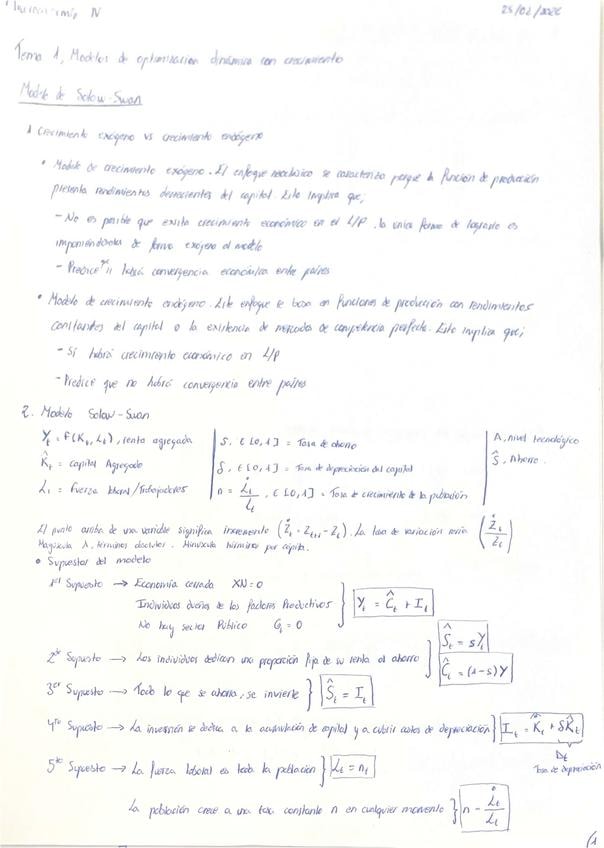 Macroeconomía IV 25/02/2026
Tema 1, Modelos de optimización dinámica con crecimiento
Modelo de Solow-Swan
1 Crecimiento exógeno vs crecimiento endógeno
• Modelo de crecimiento exógeno. El enfoque neoclásico se caracteriza porque la función de producción
presenta rendimientos decrecientes del capital. Esto implica que;
- No es posible que exista crecimiento económico en el L/P. La única forma de lograrlo es
imponiéndolas de forma exógena al modelo
- Predice que habrá convergencia económica entre países
• Modelo de crecimiento endógeno. Este enfoque se basa en funciones de producción con rendimientos
constantes del capital o la existencia de mercados de competencia perfecta. Esto implica que;
- Sí habrá crecimiento económico en L/P
- Predice que no habrá convergencia entre países
2. Modelo Solow-Swan
Y_t = F(K_t, L_t), renta agregada | S, ∈ [0,1] = Tasa de ahorro | A, nivel tecnológico
K̂_t = capital Agregado | δ, ∈ [0,1] = Tasa de depreciación del capital | Ŝ, Ahorro.
L_t = Fuerza laboral/Trabajadores | n = L̇_t/L_t, ∈ [0,1] = Tasa de crecimiento de la población
El punto arriba de una variable significa incremento (Ż_t = Z_{t+1} - Z_t). La tasa de variación sería (Ż_t/Z_t)
Mayúscula λ, términos absolutos. Minúscula términos per cápita.
• Supuestos del modelo
1er Supuesto → Economía cerrada XN=0
Individuos dueños de los factores Productivos } Y_t = Ĉ_t + I_t
No hay sector Público G_t = 0
2do Supuesto → Los individuos dedican una proporción fija de su renta al ahorro } Ŝ_t = sY_t
Ĉ_t = (1-s)Y
3er Supuesto → Todo lo que se ahorra, se invierte } Ŝ_t = I_t
4to Supuesto → La inversión se dedica a la acumulación de capital y a cubrir costes de depreciación } I_t = K̂_t + δK̂_t
D_t
Tasa de depreciación
5to Supuesto → La fuerza laboral es toda la población } L_t = n_t
La población crece a una tasa constante n en cualquier momento } n - L̇_t/L_t
(1